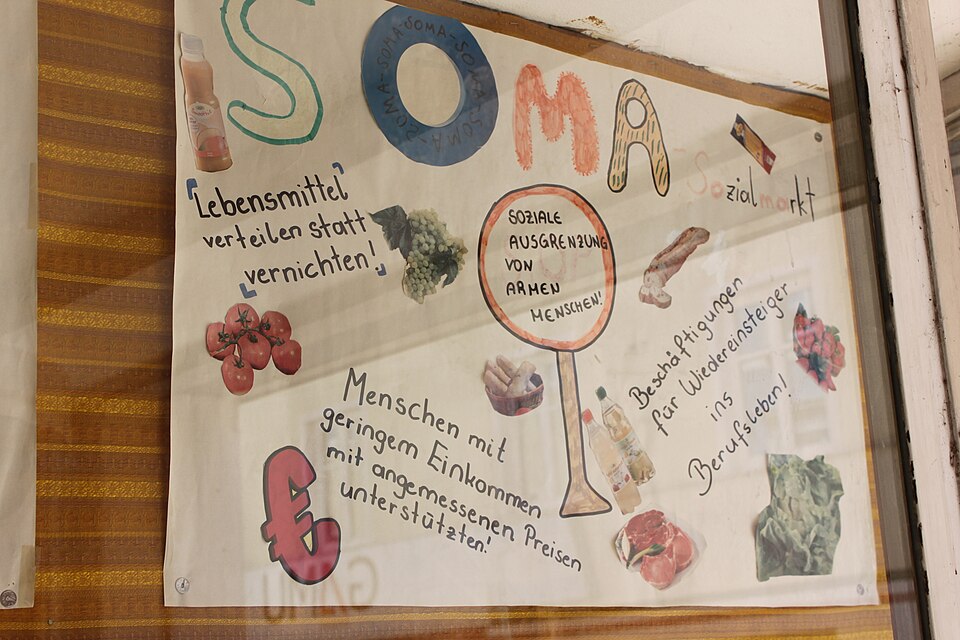 SOMA
SOMA-SOMA-SOMA-SOMA-SOMA-SOMA
Sozialmarkt
Lebensmittel
verteilen statt
vernichten!
SOZIALE
AUSGRENZUNG
VON
ARMEN
MENSCHEN!
Beschäftigungen
für Wiedereinsteiger
ins
Berufsleben!
Menschen mit
geringem Einkommen
mit angemessenen Preisen
unterstützten!
€